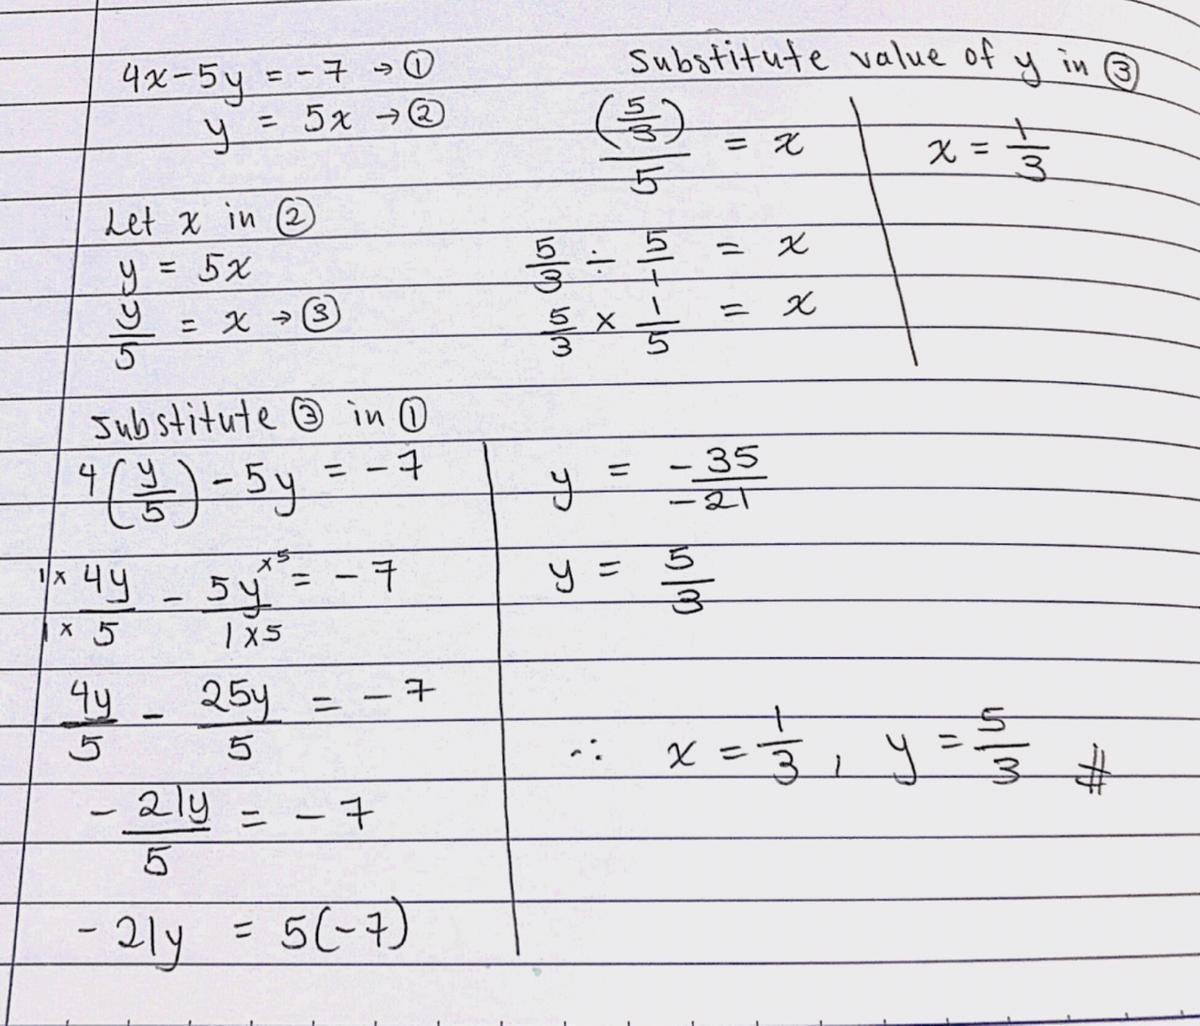 4x-5y = -7 → ①
y = 5x → ②
Let x in ②
y = 5x
y/5 = x → ③
Substitute ③ in ①
4(y/5) - 5y = -7
1× 4y / 1× 5 - 5y ×5 / 1×5 = -7
4y/5 - 25y/5 = -7
-21y/5 = -7
-21y = 5(-7)
y = -35/-21
y = 5/3
Substitute value of y in ③
(5/3)/5 = x
5/3 ÷ 5/1 = x
5/3 × 1/5 = x
x = 1/3
∴ x = 1/3 , y = 5/3 #